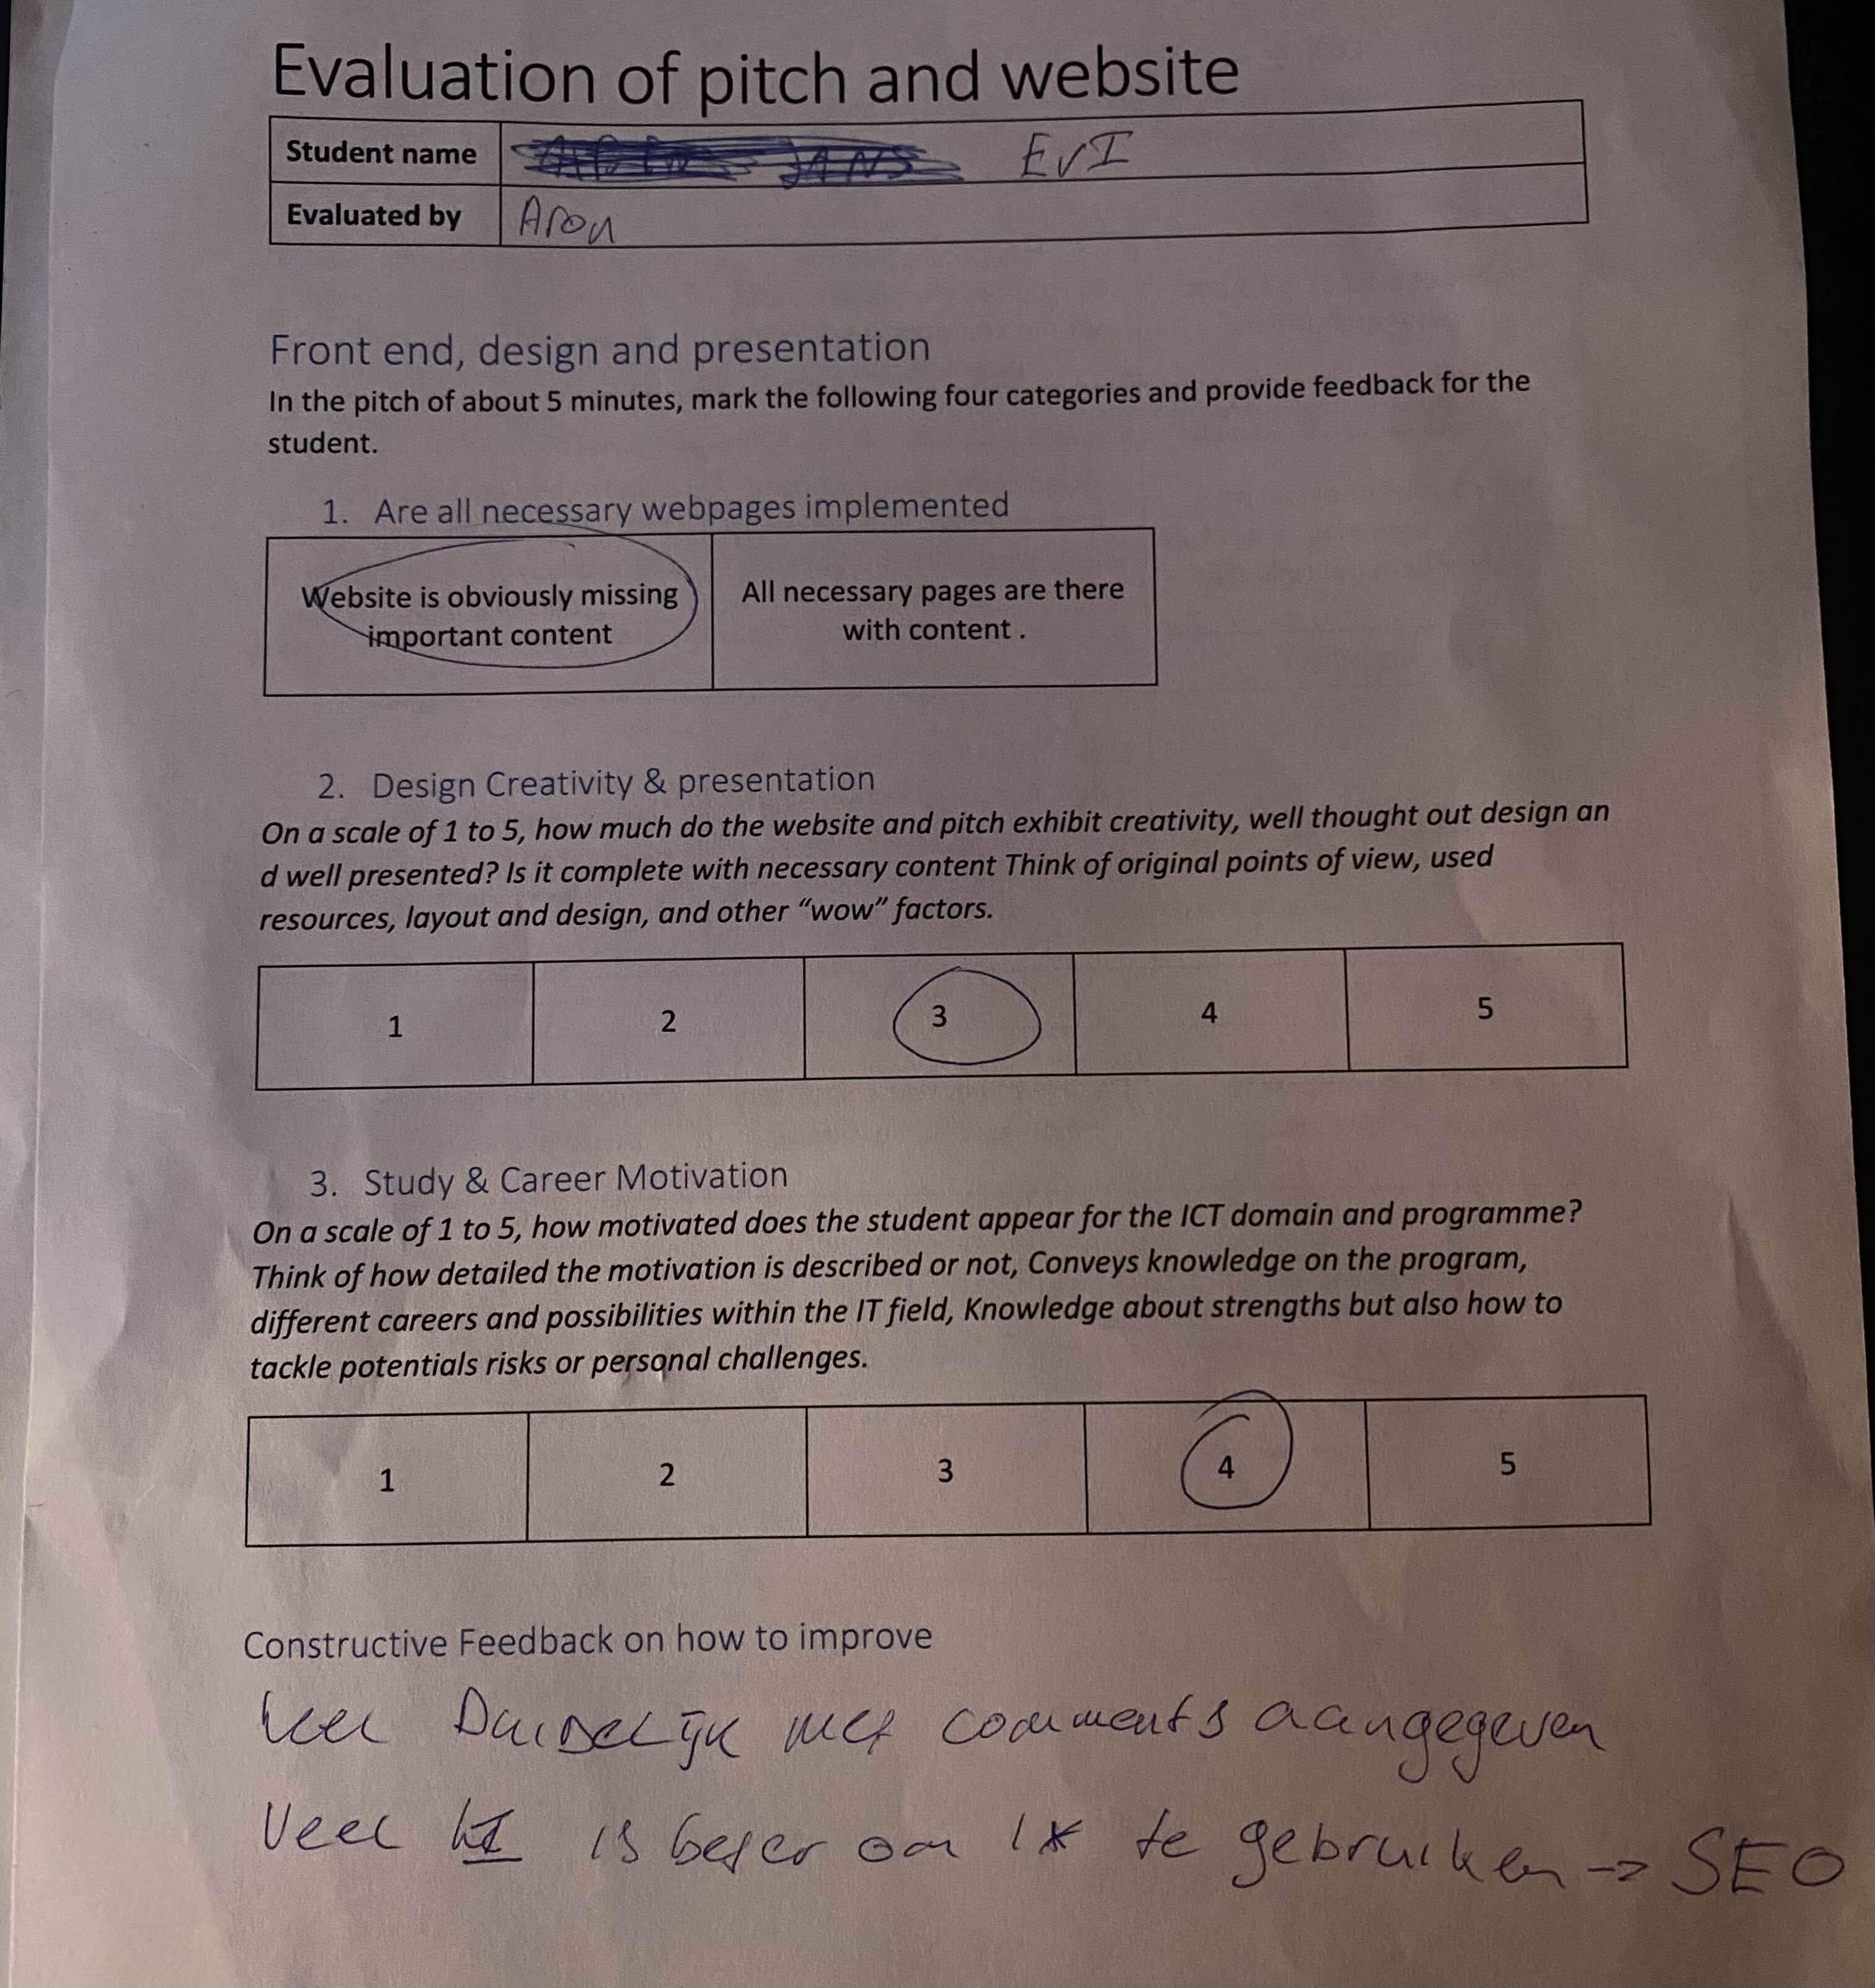 Evaluation of pitch and website
Student name EVI
Evaluated by Aron
Front end, design and presentation
In the pitch of about 5 minutes, mark the following four categories and provide feedback for the
student.
1. Are all necessary webpages implemented
Website is obviously missing
important content
All necessary pages are there
with content .
2. Design Creativity & presentation
On a scale of 1 to 5, how much do the website and pitch exhibit creativity, well thought out design an
d well presented? Is it complete with necessary content Think of original points of view, used
resources, layout and design, and other “wow” factors.
1 2 3 4 5
3. Study & Career Motivation
On a scale of 1 to 5, how motivated does the student appear for the ICT domain and programme?
Think of how detailed the motivation is described or not, Conveys knowledge on the program,
different careers and possibilities within the IT field, Knowledge about strengths but also how to
tackle potentials risks or personal challenges.
1 2 3 4 5
Constructive Feedback on how to improve
DuiDelijk met comments aangegeven
Veel is beter om 1x te gebruiken -> SEO